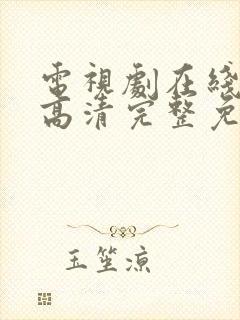 電視劇在綫
高清完整免
玉笙涼